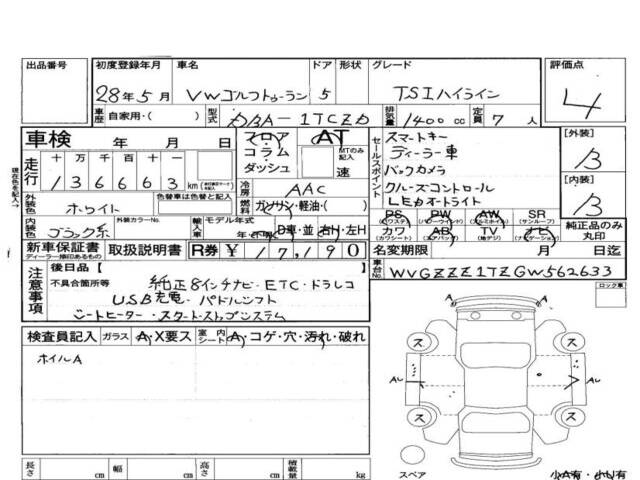 出品番号 初度登録年月 車名 ドア 形状 グレード 評価点
28年5月 VWゴルフトゥーラン 5 TSIハイライン 4
車歴 自家用・( ) 型式 DBA-1TCZD 排気量 1400cc 定員 7人
車検 年 月 日 フロア・コラム・ダッシュ AT MTのみ記入 速
セールスポイント
スマートキー
ディーラー車
バックカメラ
クルーズコントロール
LEDオートライト
[外装] B
[内装] B
現在色を記入→
走行 十 万 千 百 十 一
136663 km
冷房 AAC
外装色 ホワイト 色替車は色替前と色
燃料 ガソリン・軽油・( )
内装色 ブラック系 外装カラーNo. 輸入車 モデル年式 年 D車・並 右H・左H
PS PW AW SR
(パワステ) (パワーウインド) (アルミホイル) (サンルーフ)
カワ AB TV ナビ
(カワシート) (エアバッグ) (地デジ) (ナビゲーション)
純正品のみ丸印
新車保証書 ディーラー捺印あるもの 取扱説明書 R券 ¥17,190
名変期限 月 日迄
車台No. WVGZZZ1TZGW562633
注意事項 後日品【 】
不具合箇所等 純正8インチナビ・ETC・ドラレコ
USB充電・パドルシフト
シートヒーター・スタートストップシステム
ロック車
検査員記入 ガラス A・X要ス 室内シート A・コゲ・穴・汚れ・破れ
ホイルA
A A
ス ス
AU AU
ス ス
スペア
小A有・小U有
長さ cm 幅 cm 高さ cm 積載量 kg